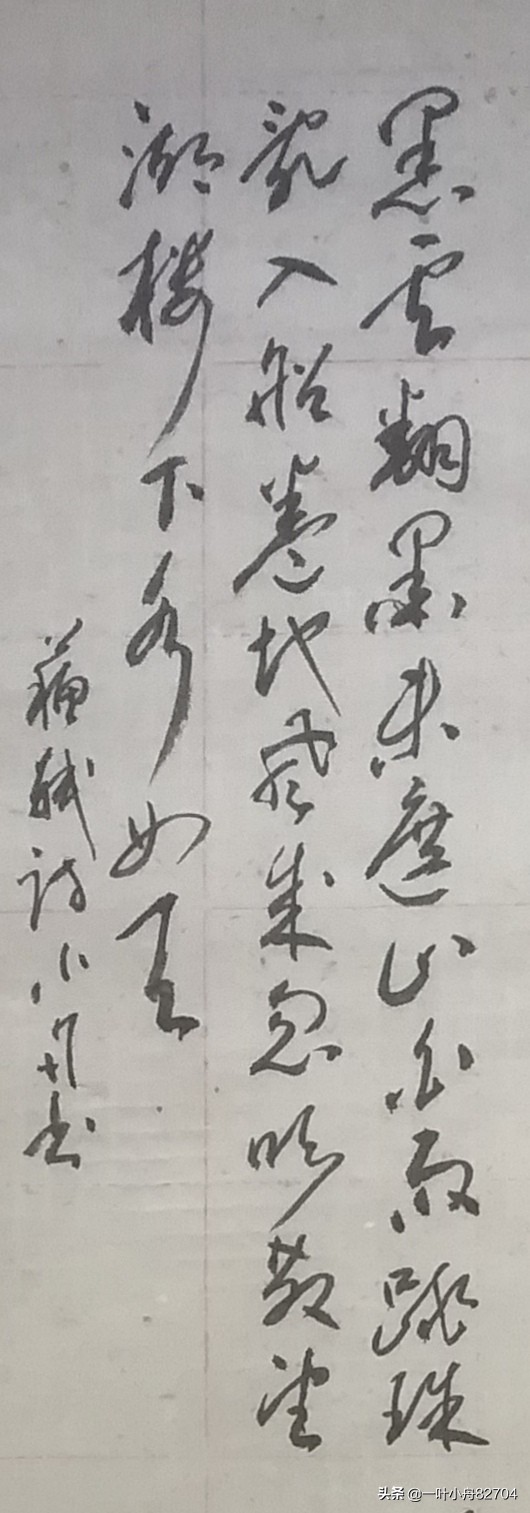 黑云翻墨未遮山白雨跳珠
亂入船卷地風來忽吹散望
湖楼下水如天
蘇軾诗小舟书
头条 @一叶小舟82704